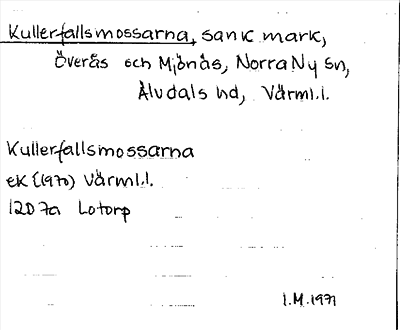 Kullerfallsmossarna, sank mark,
Överås och Mjönäs, Norra Ny sn,
Älvdals hd, Värml.l.
Kullerfallsmossarna
ek (1970) Värml.l.
12D 7a Lotorp
I.M. 1971